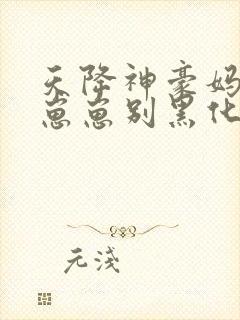 天降神豪妈
崽崽别黑化
元浅